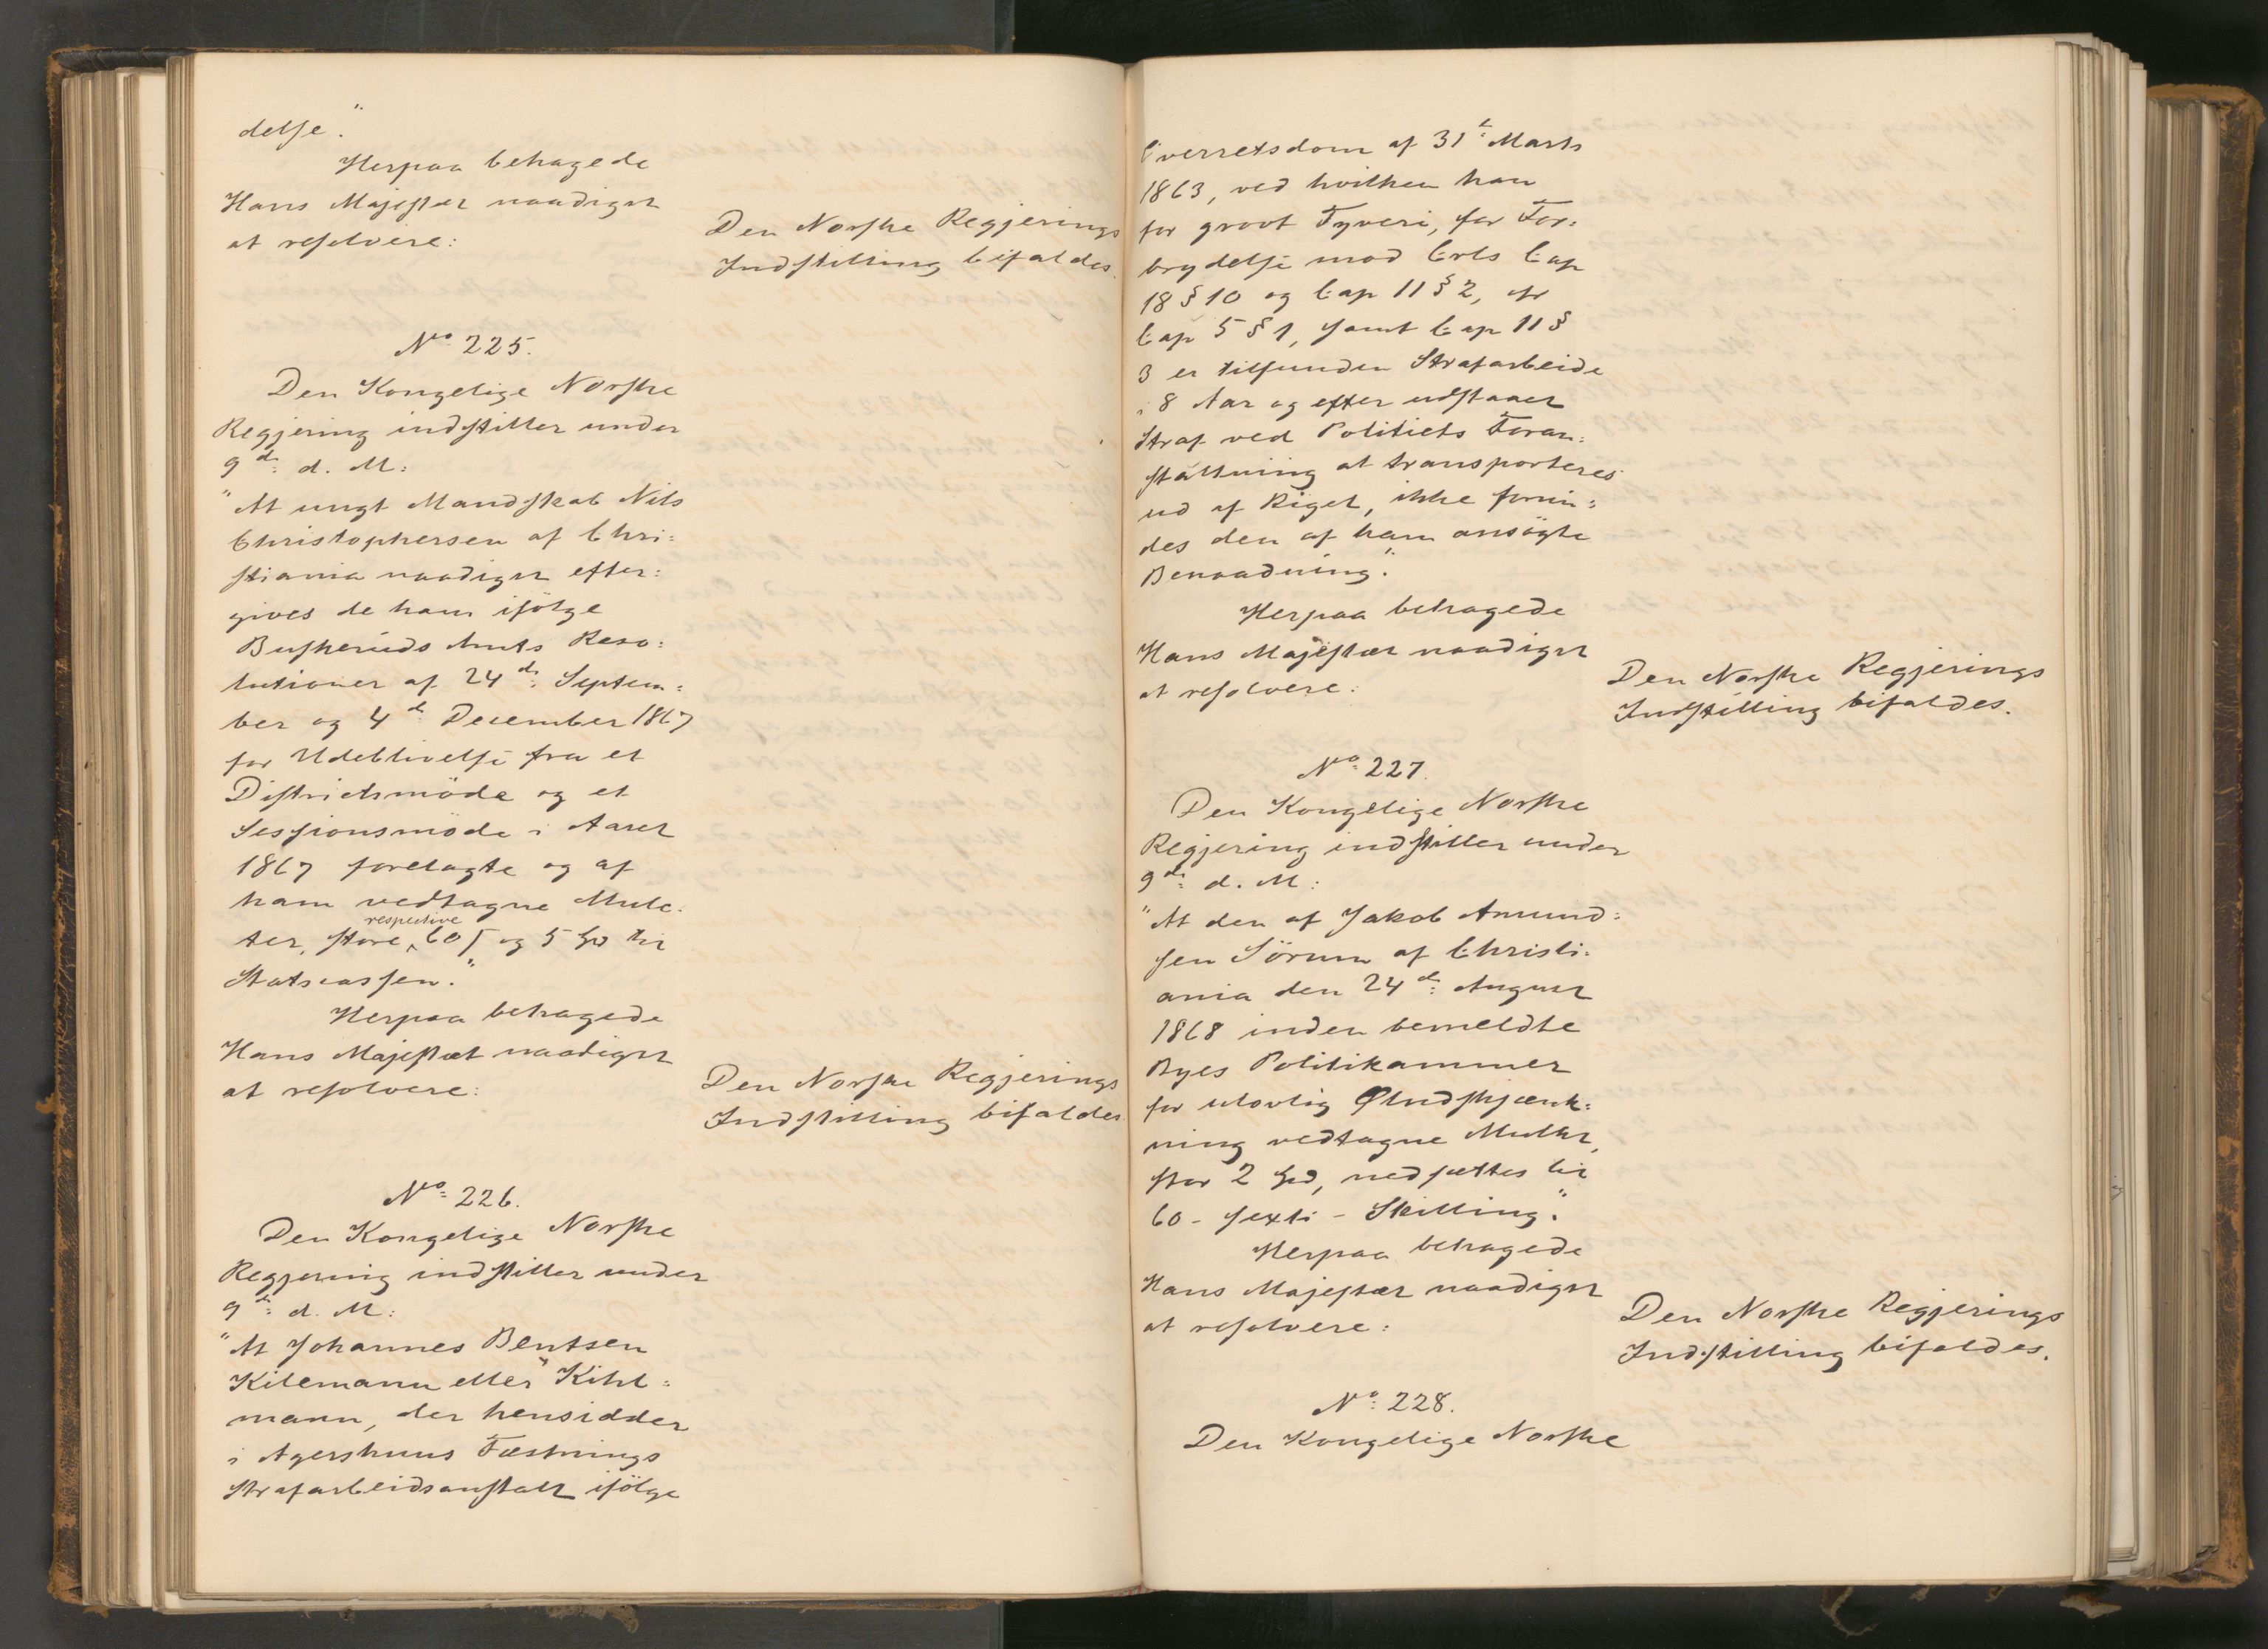 delse."
Herpaa behagede
Hans Majestæt naadigst
at resolvere:
Den Norske Regjerings
Indstilling bifaldes.
No. 225.
Den Kongelige Norske
Regjering indstiller under
9de d. M:
"At ungt Mandskab Nils
Christophersen af Chri=
stiania naadigst efter=
gives de ham ifölge
Buskeruds Amts Reso=
lutioner af 24de Septem=
ber og 4de December 1867
for Udeblivelse fra et
Districtsmöde og et
Sessionsmöde i Aaret
1867 forelagte og af
ham vedtagne Mulc=
ter, store respective 60 ſ og 5 Spd til
Statscassen."
Herpaa behagede
Hans Majestæt naadigst
at resolvere:
Den Norske Regjerings
Indstilling bifaldes.
No. 226.
Den Kongelige Norske
Regjering indstiller under
9de d. M:
"At Johannes Bentsen
Kilemann eller Kihl=
mann, der hensidder
i Agershuus Fæstnings
Strafarbeidsanstalt ifölge
Overretsdom af 31te Marts
1863, ved hvilken han
for grovt Tyveri, for For=
brydelse mod Crls Cap
18 § 10 og Cap 11 § 2, cfr
Cap 5 § 1, samt Cap 11 §
3 er tilfunden Strafarbeide
i 8 Aar og efter udstaaet
Straf ved Politiets Foran=
staltning at transporteres
ud af Riget, ikke forun=
des den af ham ansögte
Benaadning."
Herpaa behagede
Hans Majestæt naadigst
at resolvere:
Den Norske Regjerings
Indstilling bifaldes.
No. 227.
Den Kongelige Norske
Regjering indstiller under
9de d. M:
"At den af Jakob Amund=
sen Sörum af Christi=
ania den 24de August
1868 inden bemeldte
Byes Politikammer
for ulovlig Øludskjænk=
ning vedtagne Mulkt,
stor 2 Spd, nedsættes til
60 - sexti - Skilling."
Herpaa behagede
Hans Majestæt naadigst
at resolvere:
Den Norske Regjerings
Indstilling bifaldes.
No. 228.
Den Kongelige Norske